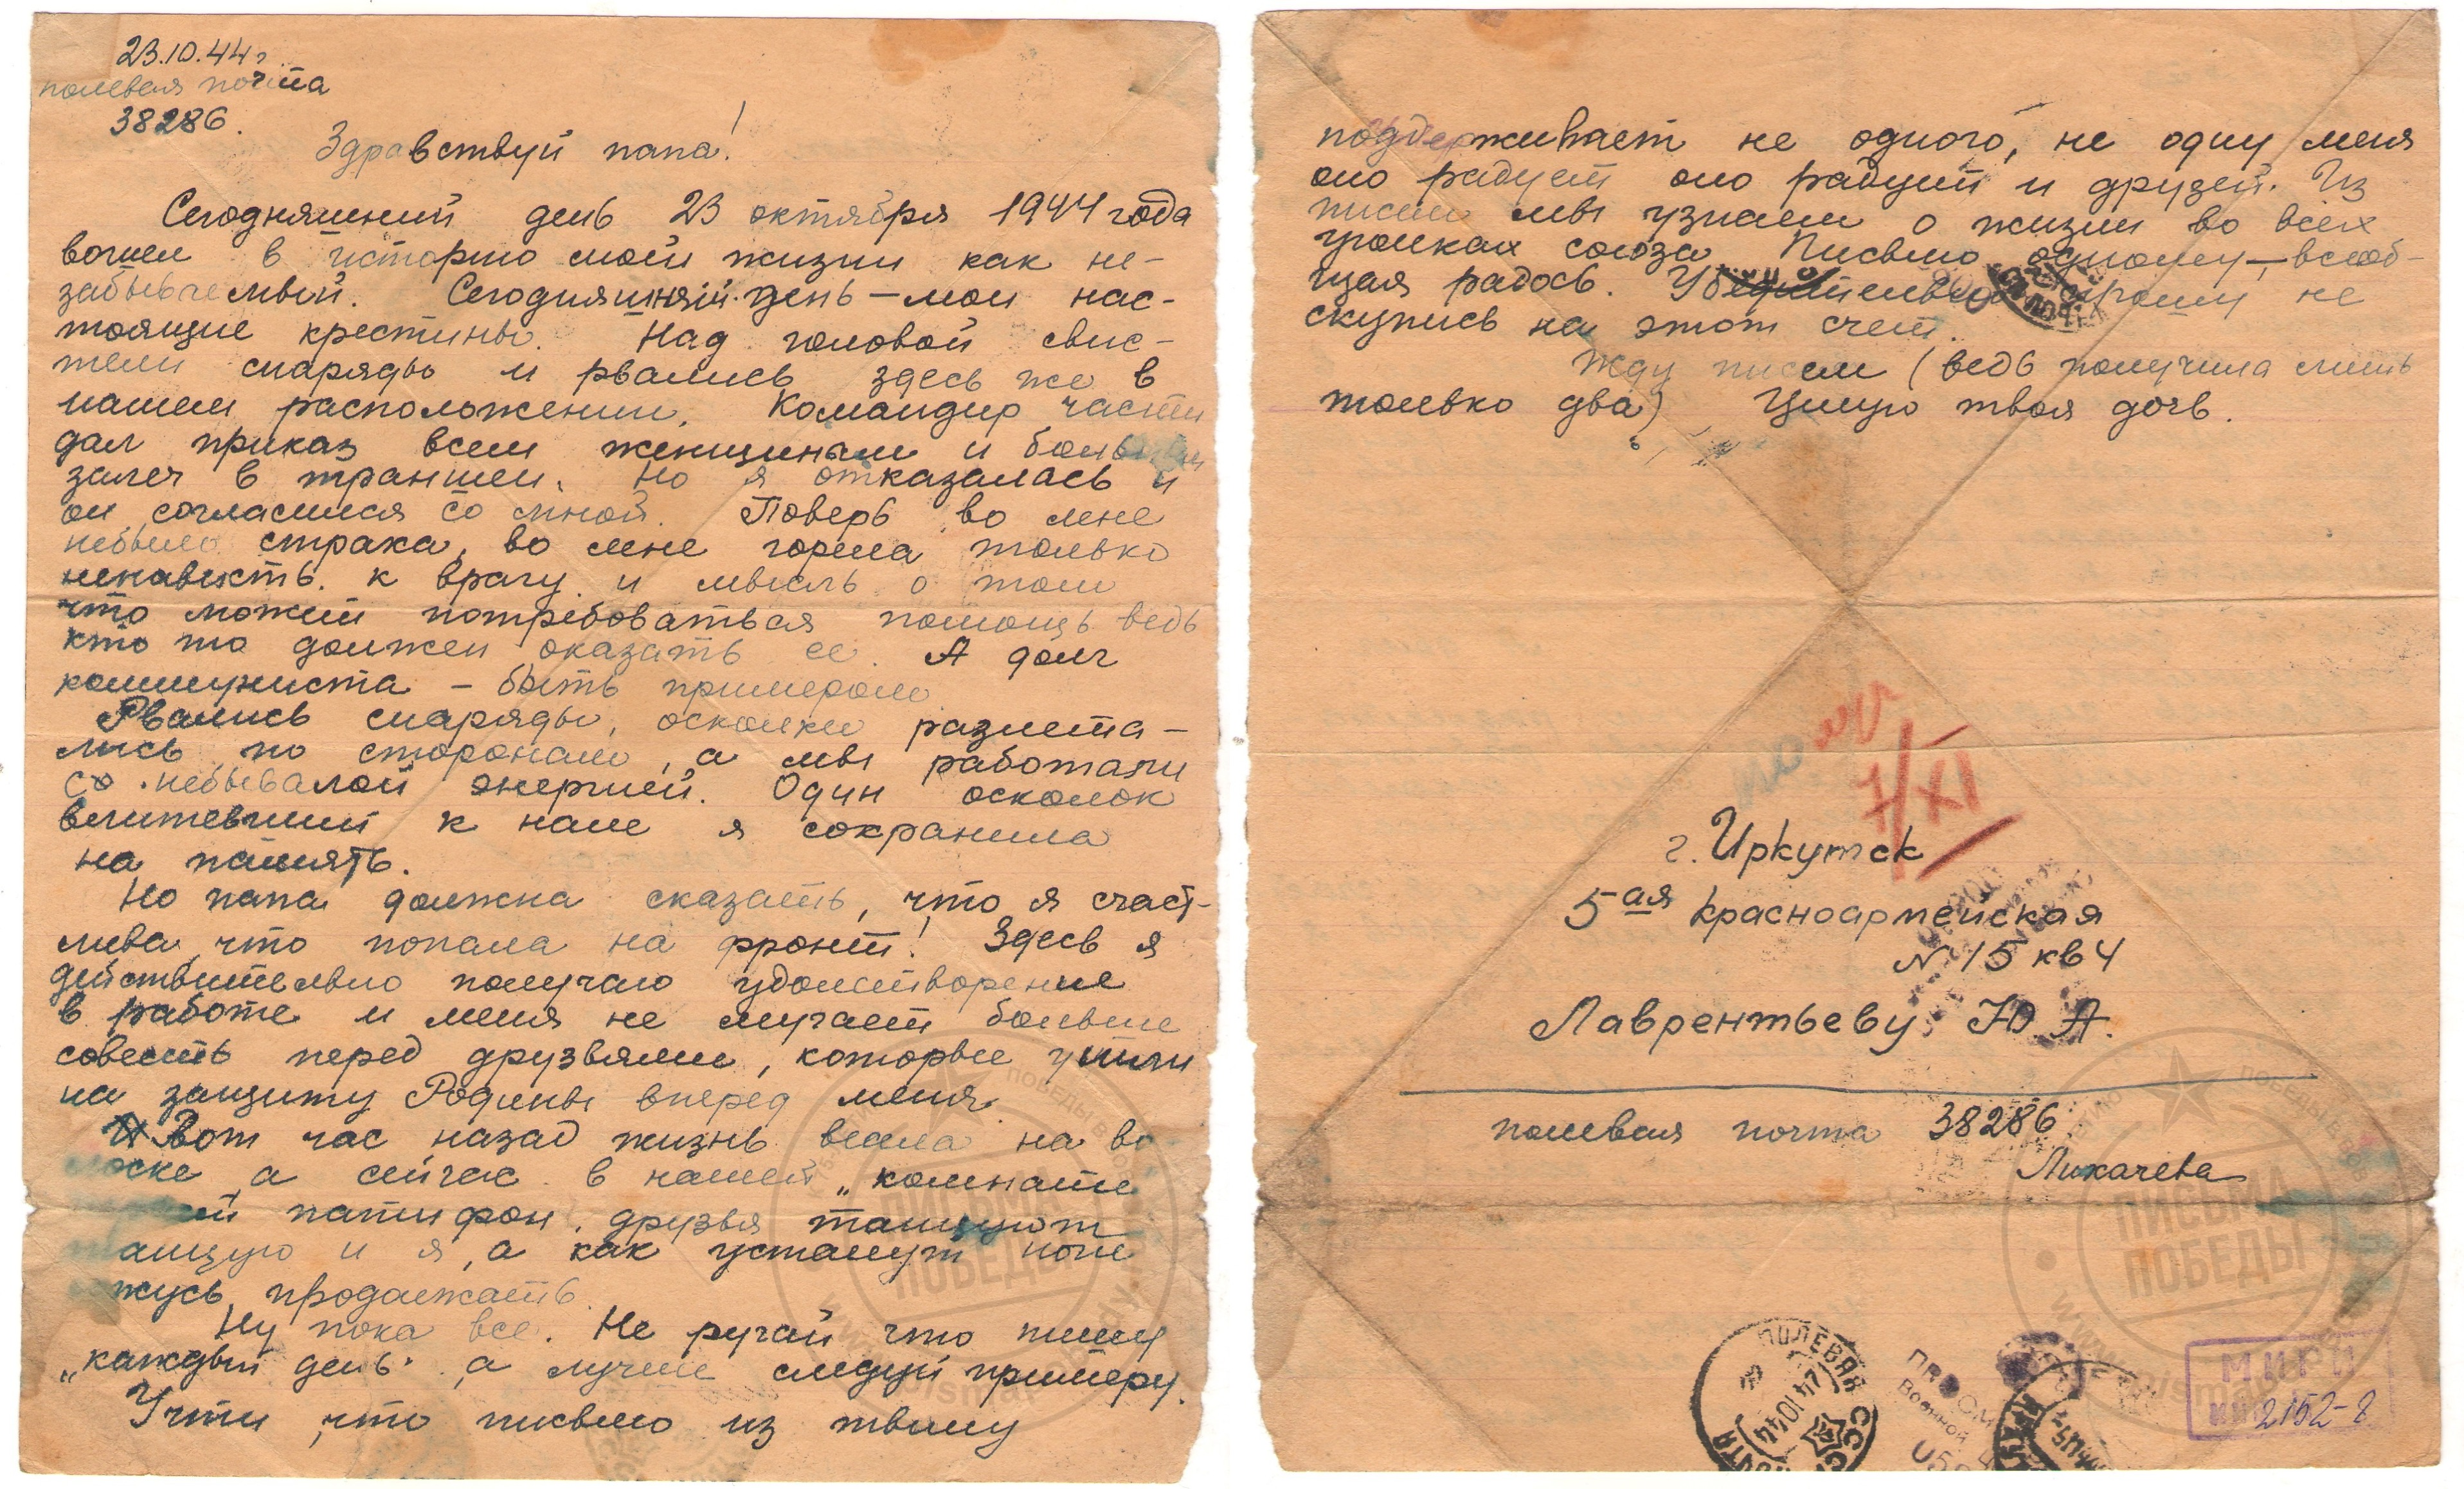 23.10.44 г
полевая почта
38286.
Здравствуй папа!
Сегодняшний день 23 октября 1944 года
вошел в историю моей жизни как не-
забываемый. Сегодняшний день – мои нас-
тоящие крестины. Над головой свис-
тели снаряды и рвались здесь же в
нашем расположении. Командир части
дал приказ всем женщинам и больным
залеч в траншеи. Но я отказалась и
он согласился со мной. Поверь во мне
небыло страха, во мне горела только
ненависть к врагу и мысль о том
что может потребоваться помощь ведь
кто то должен оказать ее. А долг
коммуниста – быть примером
Рвались снаряды, осколки разлета-
лись по сторонам, а мы работали
с небывалой энергией. Один осколок
влетевший к нам я сохранила
на память.
Но папа должна сказать, что я счаст-
лива что попала на фронт! Здесь я
действительно получаю удовлетворение
в работе и меня не мучает больше
совесть перед друзьями, которые ушли
на защиту Родины вперед меня.
Вот час назад жизнь висела на во
ске а сейчас в нашей „комнате
патифон. друзья танцуют
анцую и я, а как устанут поло
жусь продолжать.
Ну пока все. Не ругай что пишу
„каждый день" а лучше следуй примеру.
Учти, что письмо из тылу
поддерживает не одного, не одну меня
оно радует оно радует и друзей. Из
писем мы узнаем о жизни во всех
уголках союза. Письмо одному – всеоб-
щая радось. Убедительно прошу не
скупись на этот счет.
Жду писем (ведь получила лишь
только два) Целую твоя дочь.
7/XI
г. Иркутск
5ая Красноармейская
N 15 кв 4
Лаврентьеву Ю. А.
полевая почта 38286
Лихачева
ПИСЬМА
ПОБЕДЫ
ПОЛЕВАЯ
СССР
ПОЧТА
24 10 44
Военной
МИГИ
2152-8